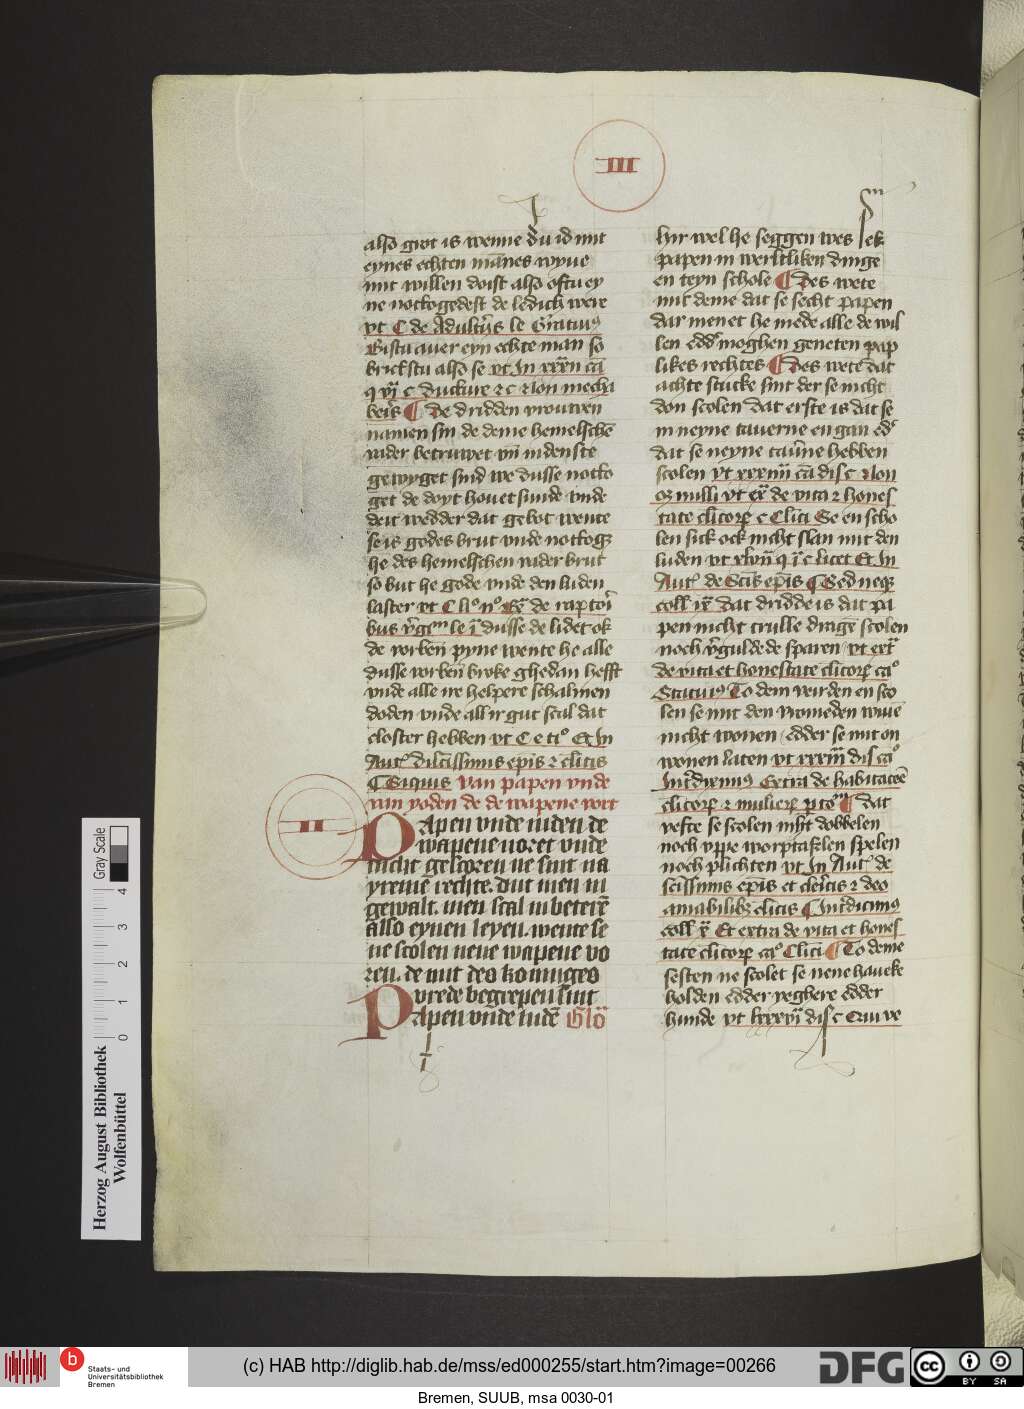 III
also grot is wenne du id mit
eynes echten mannes wyue
mit willen doist also oftu ey
ne notkogedest de ledich were
vt C de Adulteriis le Gratus
Bistu auer eyn echte man so
brickstu also se vt In xxxii ca
q vi c
keris ¶ De dridden vrouwen
namen sin de deme hemelschen
vader betruwet vnde in denste
gewyget sind we dusse notko
get de doyt houet sunde vnde
deit wedder dat gebot wente
se is godes brut vnde notkoget
he des hemelschen vader brut
so but he gode vnde den luden
laster vt C li° n° Ex de raptori
bus le i dusse de lidet ok
de vorben pyne wente he alle
dusse vorben broke ghedan hefft
vnde alle ire helpere schalmen
doden vnde all ir gut scal dat
closter hebben vt C e ti° Et In
Aut. dilcissimus epis et clicis
¶ Siquis Van papen vnde
van yoden de de wapene vort
II
Papen vnde iuden de
wapene voret vnde
nicht gescoren ne sint na
yreme rechte. dut men in
gewalt. men scal in betere
also eynen leyen. wente se
ne scolen nene wapene vo
ren. de mit des koninges
vrede begrepen sint
Papen vnde iude Glo
hir wel he seggen wes sek
papen in werltliken dinge
en teyn schole ¶ Des wete
mit deme dat se secht papen
dar menet he mede alle de wil
len edder moghen geneten pap
likes rechtes ¶ Des wete dat
achte stucke sint der se nicht
don scolen dat erste is dat se
in neyne tauerne en gan eder
dat se neyne tauerne hebben
scolen vt xxxiiii ca dis c Non
oz nulli vt ex de vita et hones
tate clicorum c Clici Se en scho
len sick ock nicht slan mit den
luden vt xlvii q i c licet Et In
Aut. de Scis epis ¶ Sed neque
coll ix dat dridde is dat pa
pen nicht trulle drage scolen
noch vgulde de sparen vt ext
de vita et honestate clicorum ca°
Statuimus To dem veirden en sco
len se mit den vromeden wiue
nicht wonen edder se mit on
wonen laten vt xxxiii dis ca°
Interdiximus Extra de habitacone
clicorum et mulierum ¶ dat
vefte se scolen nicht dobbelen
noch vppe worptafelen spelen
noch plichten vt In Aut. de
scissimis epis et clericis et deo
amabilibus clicis ¶ Interdicimus
coll ix Et extra de vita et hones
tate clicorum ca° Clici ¶ To deme
sesten ne scolet se nene hauecke
holden edder yeghere edder
hunde vt lxxxvi dis c Qui ve
Herzog August Bibliothek
Wolfenbüttel
0 1 2 3 4
Gray Scale
b
Staats- und
Universitätsbibliothek
Bremen
(c) HAB http://diglib.hab.de/mss/ed000255/start.htm?image=00266
DFG
cc BY SA
Bremen, SUUB, msa 0030-01